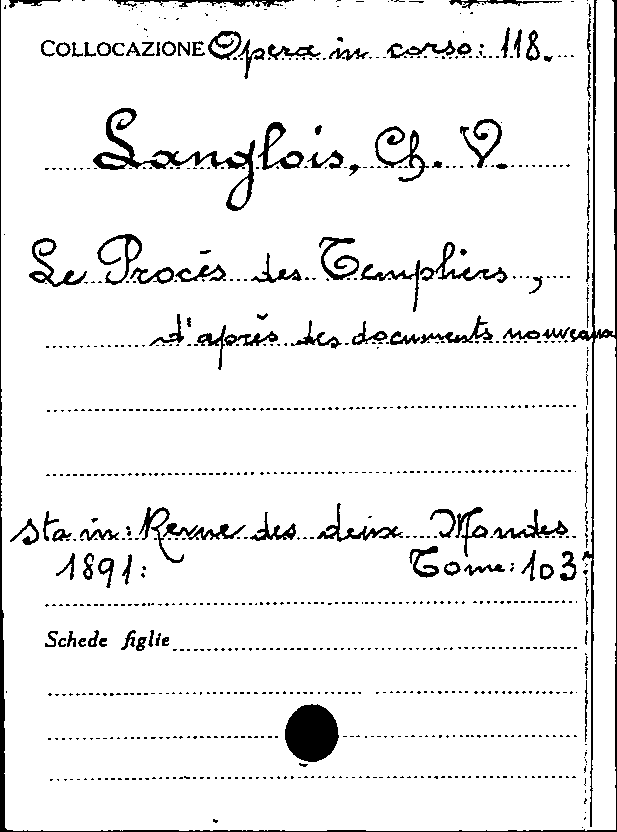 COLLOCAZIONE Opera in corso: 118.
Langlois, Ch. V.
Le Procès des Templiers,
d'après des documents nouveaux
sta in: Revue des deux Mondes
1891: Tome: 103:
Schede figlie